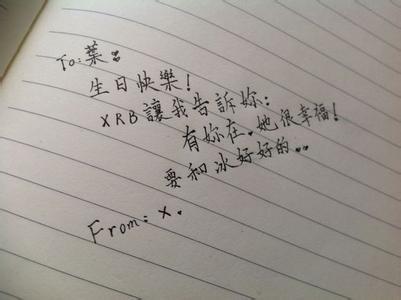 To: 葉:
生日快樂!
XRB讓我告訴妳:
有妳在,她很幸福!
要和冰好好的...
From: x.